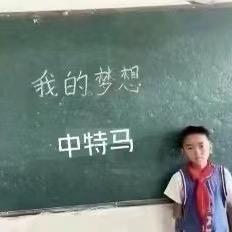 我的梦想
中特马